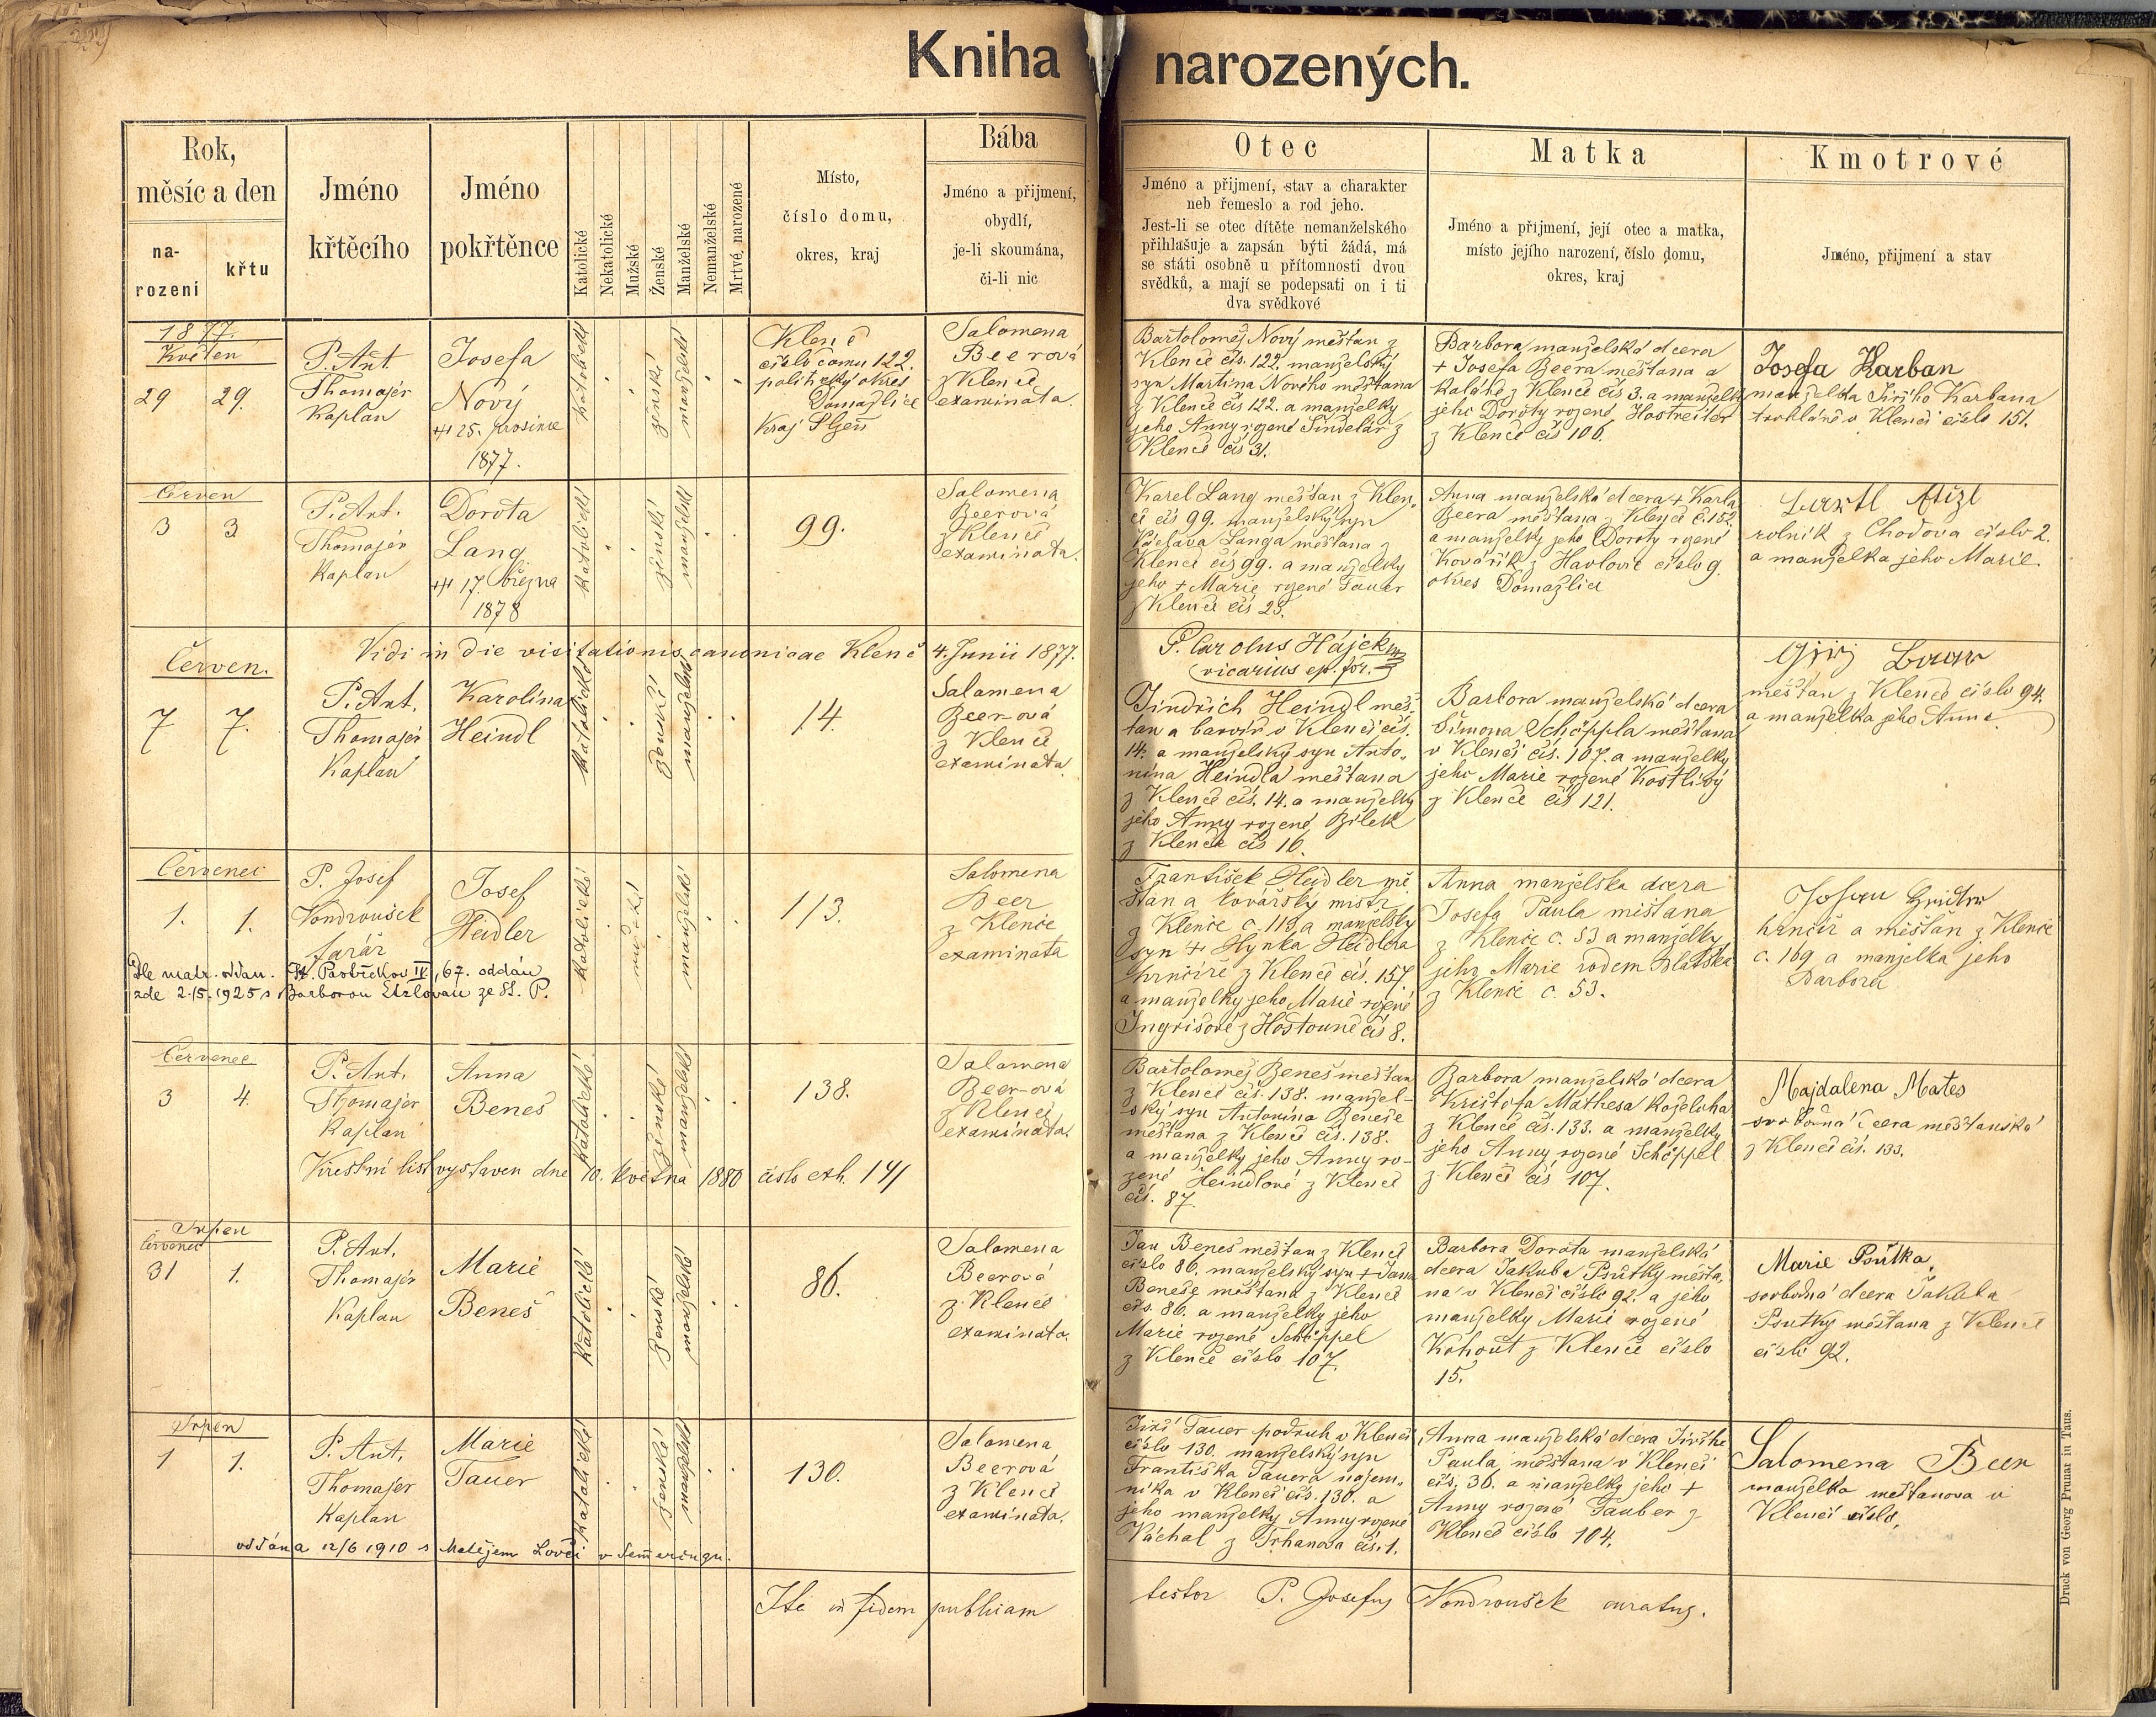 Kniha narozených.
Rok,
měsíc a den
na-
rození
křtu
Jméno
křtěcího
Jméno
pokřtěnce
Katolické
Nekatolické
Mužské
Ženské
Manželské
Nemanželské
Mrtvé, narozené
Místo,
číslo domu,
okres, kraj
Bába
Jméno a přijmení,
obydlí,
je-li skoumána,
či-li nic
Otec
Jméno a přijmení, stav a charakter
neb řemeslo a rod jeho.
Jest-li se otec dítěte nemanželského
přihlašuje a zapsán býti žádá, má
se státi osobně u přítomnosti dvou
svědků, a mají se podepsati on i ti
dva svědkové
Matka
Jméno a přijmení, její otec a matka,
místo jejího narození, číslo domu,
okres, kraj
Kmotrové
Jméno, přijmení a stav
1877.
Květen
29 29.
P. Ant.
Thomajer
Kaplan
Josefa
Nový
25. prosince
1877.
katolické
ženské
manželské
Klenč
číslo domu 122.
politický okres
Domažlice
Kraj Plzeň
Salomena
Beerová
z Klenče
examinata.
Bartoloměj Nový měšťan z
Klenče čís. 122. manželský
syn Martina Nového měšťana
z Klenče čís 122. a manželky
jeho Anny rozené Šindelář z
Klenče čís 31.
Barbora manželská dcera
+ Josefa Beera měšťana a
z Klenče čís 3. a manželky
jeho Doroty rozené Hostreiter
z Klenče čís 106.
Josefa Karban
manželka Jiřího Karbana
v Klenčí číslo 151.
Červen
3 3.
P. Ant.
Thomajer
Kaplan
Dorota
Lang
17. března
1878
katolické
ženské
manželské
99.
Salomena
Beerová
z Klenče
examinata.
Karel Lang měšťan z Klen-
če čís 99. manželský syn
Václava Langa měšťana z
Klenče čís 99. a manželky
jeho + Marie rozené Tauer
z Klenče čís 25.
Anna manželská dcera + Karla
Beera měšťana z Klenče č. 152.
a manželky jeho Doroty rozené
Kovářík z Havlovic číslo 9.
okres Domažlice
rolník z Chodova číslo 2.
a manželka jeho Marie.
Vidi in die visitationis canonicae Klenč 4. Junii 1877.
P. Carolus Hájek
vicarius ep. for.
Červen.
7 7.
P. Ant.
Thomajer
Kaplan
Karolina
Heindl
katolické
ženské
manželské
14.
Salomena
Beer-ová
z Klenče
examinata
Jindřich Heindl měš-
ťan a barvíř v Klenčí čís.
14. a manželský syn Anto-
nína Heindla měšťana
z Klenče čís. 14. a manželky
jeho Anny rozené Bílek
z Klenče čís 16.
Barbora manželská dcera
Šimona Schöppla měšťana
v Klenčí čís. 107. a manželky
jeho Marie rozené Kostlivý
z Klenče čís 121.
měšťan z Klenče číslo 94.
a manželka jeho Anna.
Červenec
1. 1.
P. Josef
Vondroušek
farář
Josef
Heidler
katolické
mužské
manželské
113.
Salomena
Beer
z Klenče
examinata
František Heidler mě-
šťan a kovářský mistr
z Klenče č. 113, a manželský
syn + Hynka Heidlera
hrnčíře z Klenče čís. 157.
a manželky jeho Marie rozené
Ingrišové z Hostouně čís 8.
Anna manželská dcera
Josefa Paula měšťana
z Klenče č. 53 a manželky
jeho Marie rodem
z Klenče č. 53.
hrnčíř a měšťan z Klenče
č. 169 a manželka jeho
Barbora
Dle matr. oddan. IV, 67. oddán
zde 2./5. 1925 s Barborou ze St. P.
Červenec
3 4.
P. Ant.
Thomajer
Kaplan
Anna
Beneš
katolické
ženské
manželské
138.
Salomena
Beer-ová
z Klenče
examinata.
Bartoloměj Beneš měšťan
z Klenče čís. 138. manžel-
ský syn Antonína Beneše
měšťana z Klenče čís. 138.
a manželky jeho Anny ro-
zené Heindlové z Klenče
čís. 87.
Barbora manželská dcera
Krištofa Mathesa koželuha
z Klenče čís. 133. a manželky
jeho Anny rozené Schöppel
z Klenče čís 107.
Majdalena Mates
svobodná dcera měšťanská
z Klenče čís. 133.
Křestní list vystaven dne 10. května 1880 číslo exh. 141
Srpen
Červenec
31 1.
P. Ant.
Thomajer
Kaplan
Marie
Beneš
katolické
ženské
manželské
86.
Salomena
Beerová
z Klenče
examinata.
Jan Beneš měšťan z Klenče
číslo 86. manželský syn + Jana
Beneše měšťana z Klenče
čís. 86. a manželky jeho
Marie rozené Schöppel
z Klenče číslo 107.
Barbora Dorota manželská
dcera Jakuba Psutky měšťa-
na v Klenčí číslo 92. a jeho
manželky Marie rozené
Kohout z Klenče číslo
15.
Marie Psutka,
svobodná dcera Jakuba
Psutky měšťana z Klenče
číslo 92.
Srpen
1 1.
P. Ant.
Thomajer
Kaplan
Marie
Tauer
katolické
ženské
manželské
130.
Salomena
Beerová
z Klenče
examinata.
Jiří Tauer podruh v Klenčí
číslo 130. manželský syn
Františka Tauera nájem-
níka v Klenčí čís. 130. a
jeho manželky Anny rozené
Váchal z Trhanova čís. 1.
Anna manželská dcera Jiřího
Paula, měšťana v Klenčí
čís. 36. a manželky jeho +
Anny rozené Tauber z
Klenče číslo 104.
Salomena Beer
manželka měšťanova v
Klenčí číslo.
oddána 12/6 1910 s Matějem v Semeringu.
Ita in fidem publicam testor P. Josefus Vondroušek curatus.
Druck von Georg Prunar in Taus.